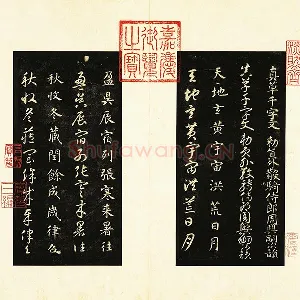 嘉慶御覽之寶
真草千字文 勅員外散騎侍郎周興嗣次韻
真草千字文 勅員外散騎侍郎周興嗣次韻
天地玄黃宇宙洪荒日月
天地玄黃宇宙洪荒日月
盈昃辰宿列張寒來暑往
盈昃辰宿列張寒來暑往
秋收冬藏閏餘成歲律呂
秋收冬藏閏餘成歲律呂
Shufawang.cn